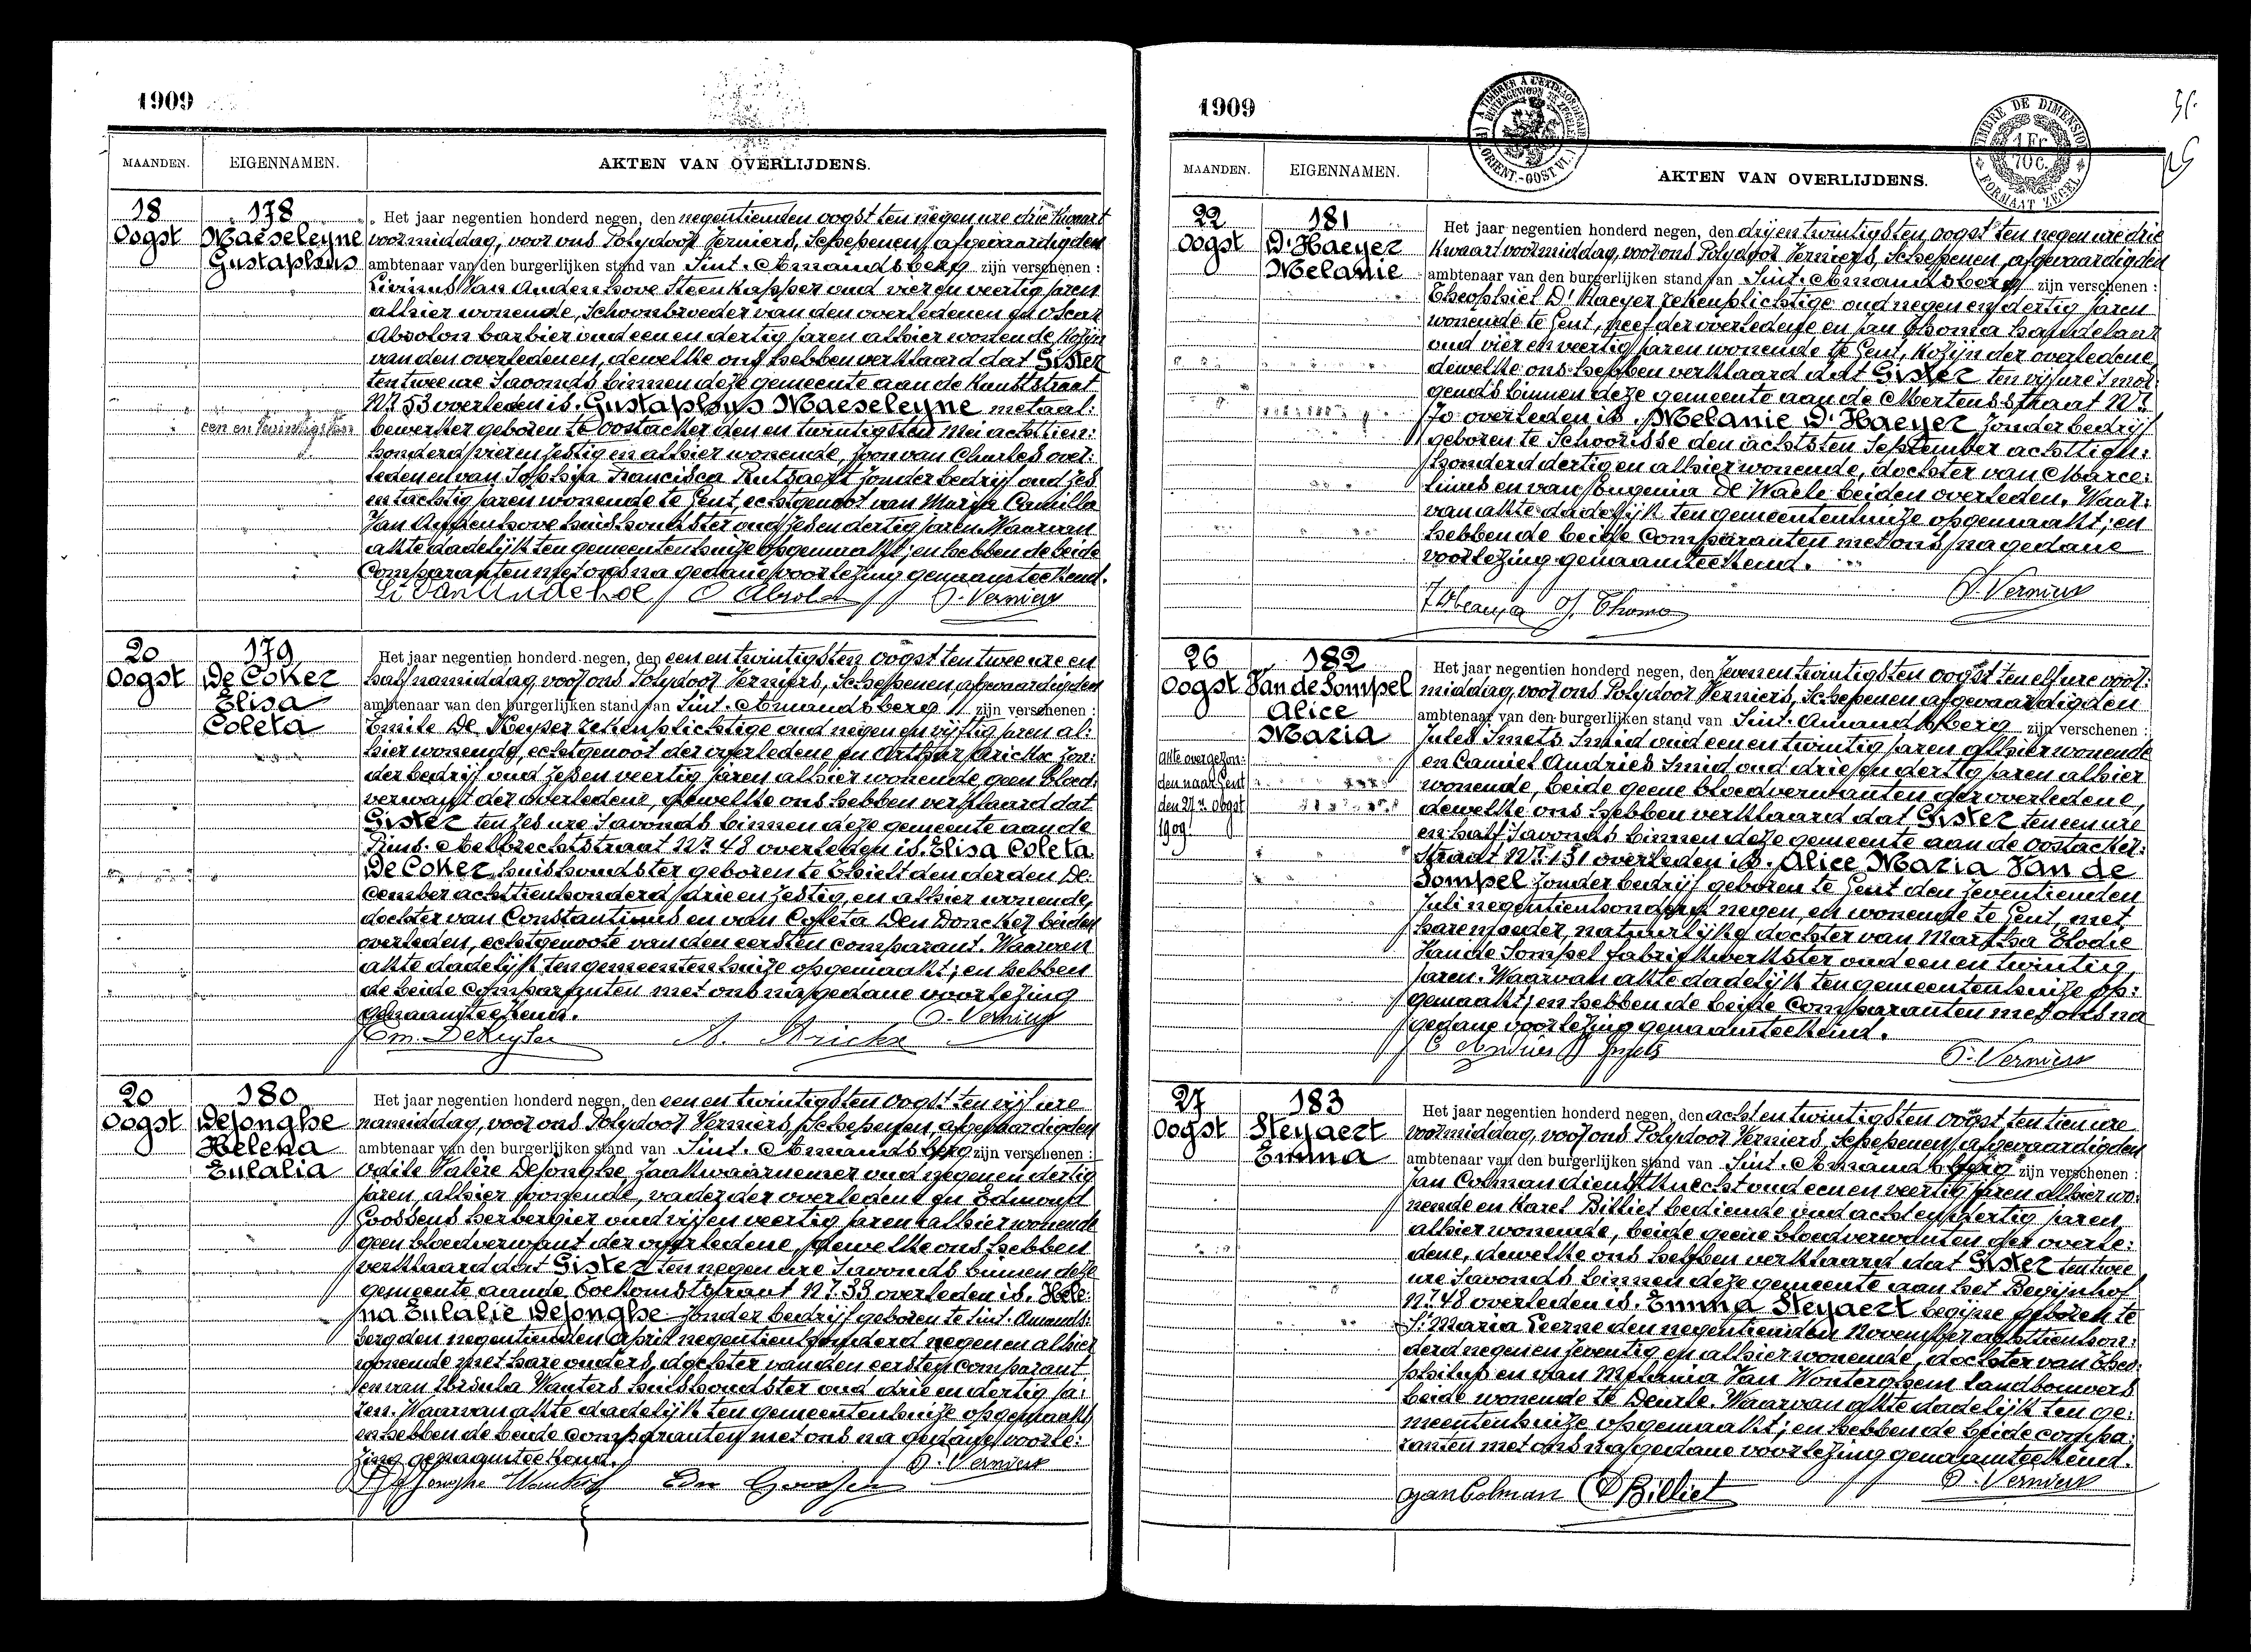 1909
MAANDEN. EIGENNAMEN. AKTEN VAN OVERLIJDENS.
18 Oogst
178
Maeseleyne
Gustaphus
een en twintigsten
Het jaar negentien honderd negen, den negentienden oogst ten negen ure drie kwaart
voormiddag, voor ons Polydoor Verniers, Schepenen, afgevaardigden
ambtenaar van den burgerlijken stand van Sint-Amandsberg zijn verschenen :
Livinus Van Audenhove Steenkapper oud vier en veertig jaren
alhier wonende, Schoonbroeder van den overledenen en Oscar
Absolon barbier oud een en dertig jaren alhier wonende Kozijn
van den overledenen, dewelke ons hebben verklaard dat Gister
ten twee ure Savonds binnen deze gemeente aan de Kunststraat
Nr. 53 overleden is. Gustaphus Maeseleyne metaal:
bewerker geboren te Oostacker den en twintigsten Mei achttien:
honderd vier en zestig en alhier wonende, zoon van Charles over:
leden en van Sophija Francisca Rutsaert zonder bedrijf oud zes
en tachtig jaren wonende te Gent, echtgenoot van Marija Camilla
Van Audenhove huishoudster oud zes en dertig jaren. Waarvan
akte dadelijk ten gemeentenhuize opgemaakt; en hebben de beide
Comparanten met ons na gedane voorlezing genaamteekend.
O Absolon P. Verniers
20 Oogst
179
De Coker
Elisa
Coleta
Het jaar negentien honderd negen, den een en twintigsten oogst ten twee ure en
half namiddag, voor ons Polydoor Verniers, Schepenen, afgevaardigden
ambtenaar van den burgerlijken stand van Sint-Amandsberg zijn verschenen :
Emile De Keyser rekenplichtige oud negen en vijftig jaren al:
hier wonende, echtgenoot der overledene en Arthur Arickx zon:
der bedrijf oud zes en veertig jaren alhier wonende, geen bloed:
verwant der overledene, dewelke ons hebben verklaard dat
Gister ten zes ure Savonds binnen deze gemeente aan de
Prins-Aelbrechtstraat Nr. 48 overleden is. Elisa Coleta
De Coker huishoudster geboren te Thielt den derden De:
cember achttienhonderd drie en zestig, en alhier wonende,
dochter van Constantinus en van Coleta Den Doncker beiden
overleden, echtgenoote van den eersten comparant. Waarvan
akte dadelijk ten gemeentenhuize opgemaakt; en hebben
de beide Comparanten met ons na gedane voorlezing
genaamteekend. P. Verniers
Em. DeKeyser A. Arickx
20 Oogst
180
DeJonghe
Helena
Eulalia
Het jaar negentien honderd negen, den een en twintigsten oogst ten vijf ure
namiddag, voor ons Polydoor Verniers, Schepenen, afgevaardigden
ambtenaar van den burgerlijken stand van Sint-Amandsberg zijn verschenen :
Odile Valère DeJonghe zaakwaarnemer oud negen en dertig
jaren, alhier wonende, vader der overledene en Edmond
Goossens herbergier oud vijf en veertig jaren alhier wonende
geen bloedverwant der overledene, dewelke ons hebben
verklaard dat Gister ten negen ure Savonds binnen deze
gemeente aan de Toekomststraat Nr. 33 overleden is. Hele:
na Eulalie DeJonghe zonder bedrijf geboren te Sint-Amands:
berg den negentienden April negentien honderd negen en alhier
wonende met hare ouders, dochter van den eersten comparant
en van Ursula Wauters huishoudster oud drie en dertig ja:
ren. Waarvan akte dadelijk ten gemeentenhuize opgemaakt;
en hebben de beide Comparanten met ons na gedane voorle:
zing genaamteekend. P. Verniers
Edm Goossens
1909
MAANDEN. EIGENNAMEN. AKTEN VAN OVERLIJDENS.
TIMBRE DE DIMENSION
1 Fr. 70 C.
FORMAAT ZEGEL
22 Oogst
181
D'Haeyer
Melanie
Het jaar negentien honderd negen, den drij en twintigsten oogst ten negen ure drie
Kwaart voormiddag, voor ons Polydoor Verniers, Schepenen, afgevaardigden
ambtenaar van den burgerlijken stand van Sint-Amandsberg zijn verschenen :
Theophiel D'Haeyer rekenplichtige oud negen en dertig jaren
wonende te Gent, neef der overledene en Jan Thoma handelaar
oud vier en veertig jaren wonende te Gent, Kozijn der overledene
dewelke ons hebben verklaard dat Gister ten vijf ure S'mor:
gends binnen deze gemeente aan de Mertensstraat Nr.
70 overleden is. Melanie D'Haeyer zonder bedrijf
geboren te Schoorisse den achtsten September achttien:
honderd dertig en alhier wonende, dochter van Marce:
linus en van Eugenia De Waele beiden overleden. Waar:
van akte dadelijk ten gemeentenhuize opgemaakt; en
hebben de beide Comparanten met ons na gedane
voorlezing genaamteekend.
J. Thoma P. Verniers
26 Oogst
182
Van de Sompel
Alice
Maria
Akte overgezon:
den naar Gent
den 27n Oogst
1909.
Het jaar negentien honderd negen, den zeven en twintigsten oogst ten elf ure voor:
middag, voor ons Polydoor Verniers, Schepenen afgevaardigden
ambtenaar van den burgerlijken stand van Sint-Amandsberg zijn verschenen :
Jules Smets Smid oud een en twintig jaren alhier wonende
en Camiel Andries Smid oud drie en dertig jaren alhier
wonende, beide geene bloedverwanten der overledene,
dewelke ons hebben verklaard dat Gister ten een ure
en half Savonds binnen deze gemeente aan de Oostacker:
straat Nr. 151 overleden is. Alice Maria Van de
Sompel zonder bedrijf geboren te Gent den zeventienden
Juli negentienhonderd negen, en wonende te Gent, met
hare moeder, natuurlijke dochter van Martha Elodie
Van de Sompel fabriekwerkster oud een en twintig
jaren. Waarvan akte dadelijk ten gemeentenhuize op:
gemaakt; en hebben de beide Comparanten met ons na
gedane voorlezing genaamteekend.
C Andries J Smets P. Verniers
27 Oogst
183
Steyaert
Emma
Het jaar negentien honderd negen, den acht en twintigsten oogst, ten tien ure
voormiddag, voor ons Polydoor Verniers, Schepenen, afgevaardigden
ambtenaar van den burgerlijken stand van Sint-Amandsberg zijn verschenen :
Jan Colman dienstknecht oud een en veertig jaren alhier wo:
nende en Karel Billiet bediende oud acht en dertig jaren,
alhier wonende, beide geene bloedverwanten der overle:
dene, dewelke ons hebben verklaard dat Gister ten twee
ure Savonds binnen deze gemeente aan het Begijnhof
Nr. 48 overleden is. Emma Steyaert begijne geboren te
St. Maria Leerne den negentienden November achttienhon:
derd negen en zeventig en alhier wonende, dochter van Theo:
philus en van Melanina Van Wonterghem landbouwers
beide wonende te Deurle. Waarvan akte dadelijk ten ge:
meentenhuize opgemaakt; en hebben de beide compa:
ranten met ons na gedane voorlezing genaamteekend.
Jan Colman Billiet P. Verniers